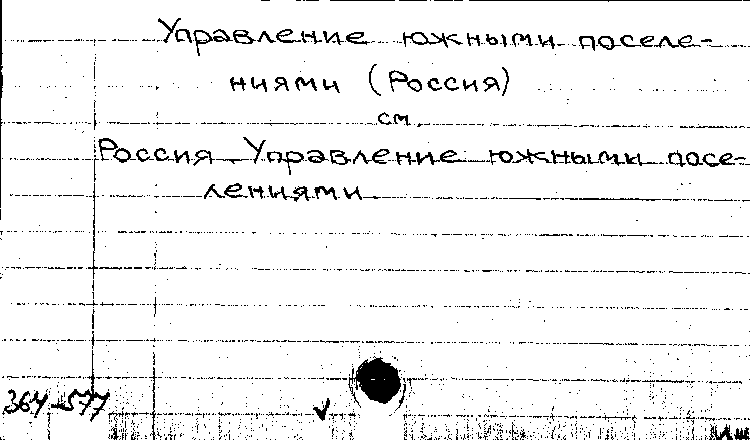 Управление южными поселе-
ниями (Россия)
см.
Россия. Управление южными посе-
лениями.
364-577